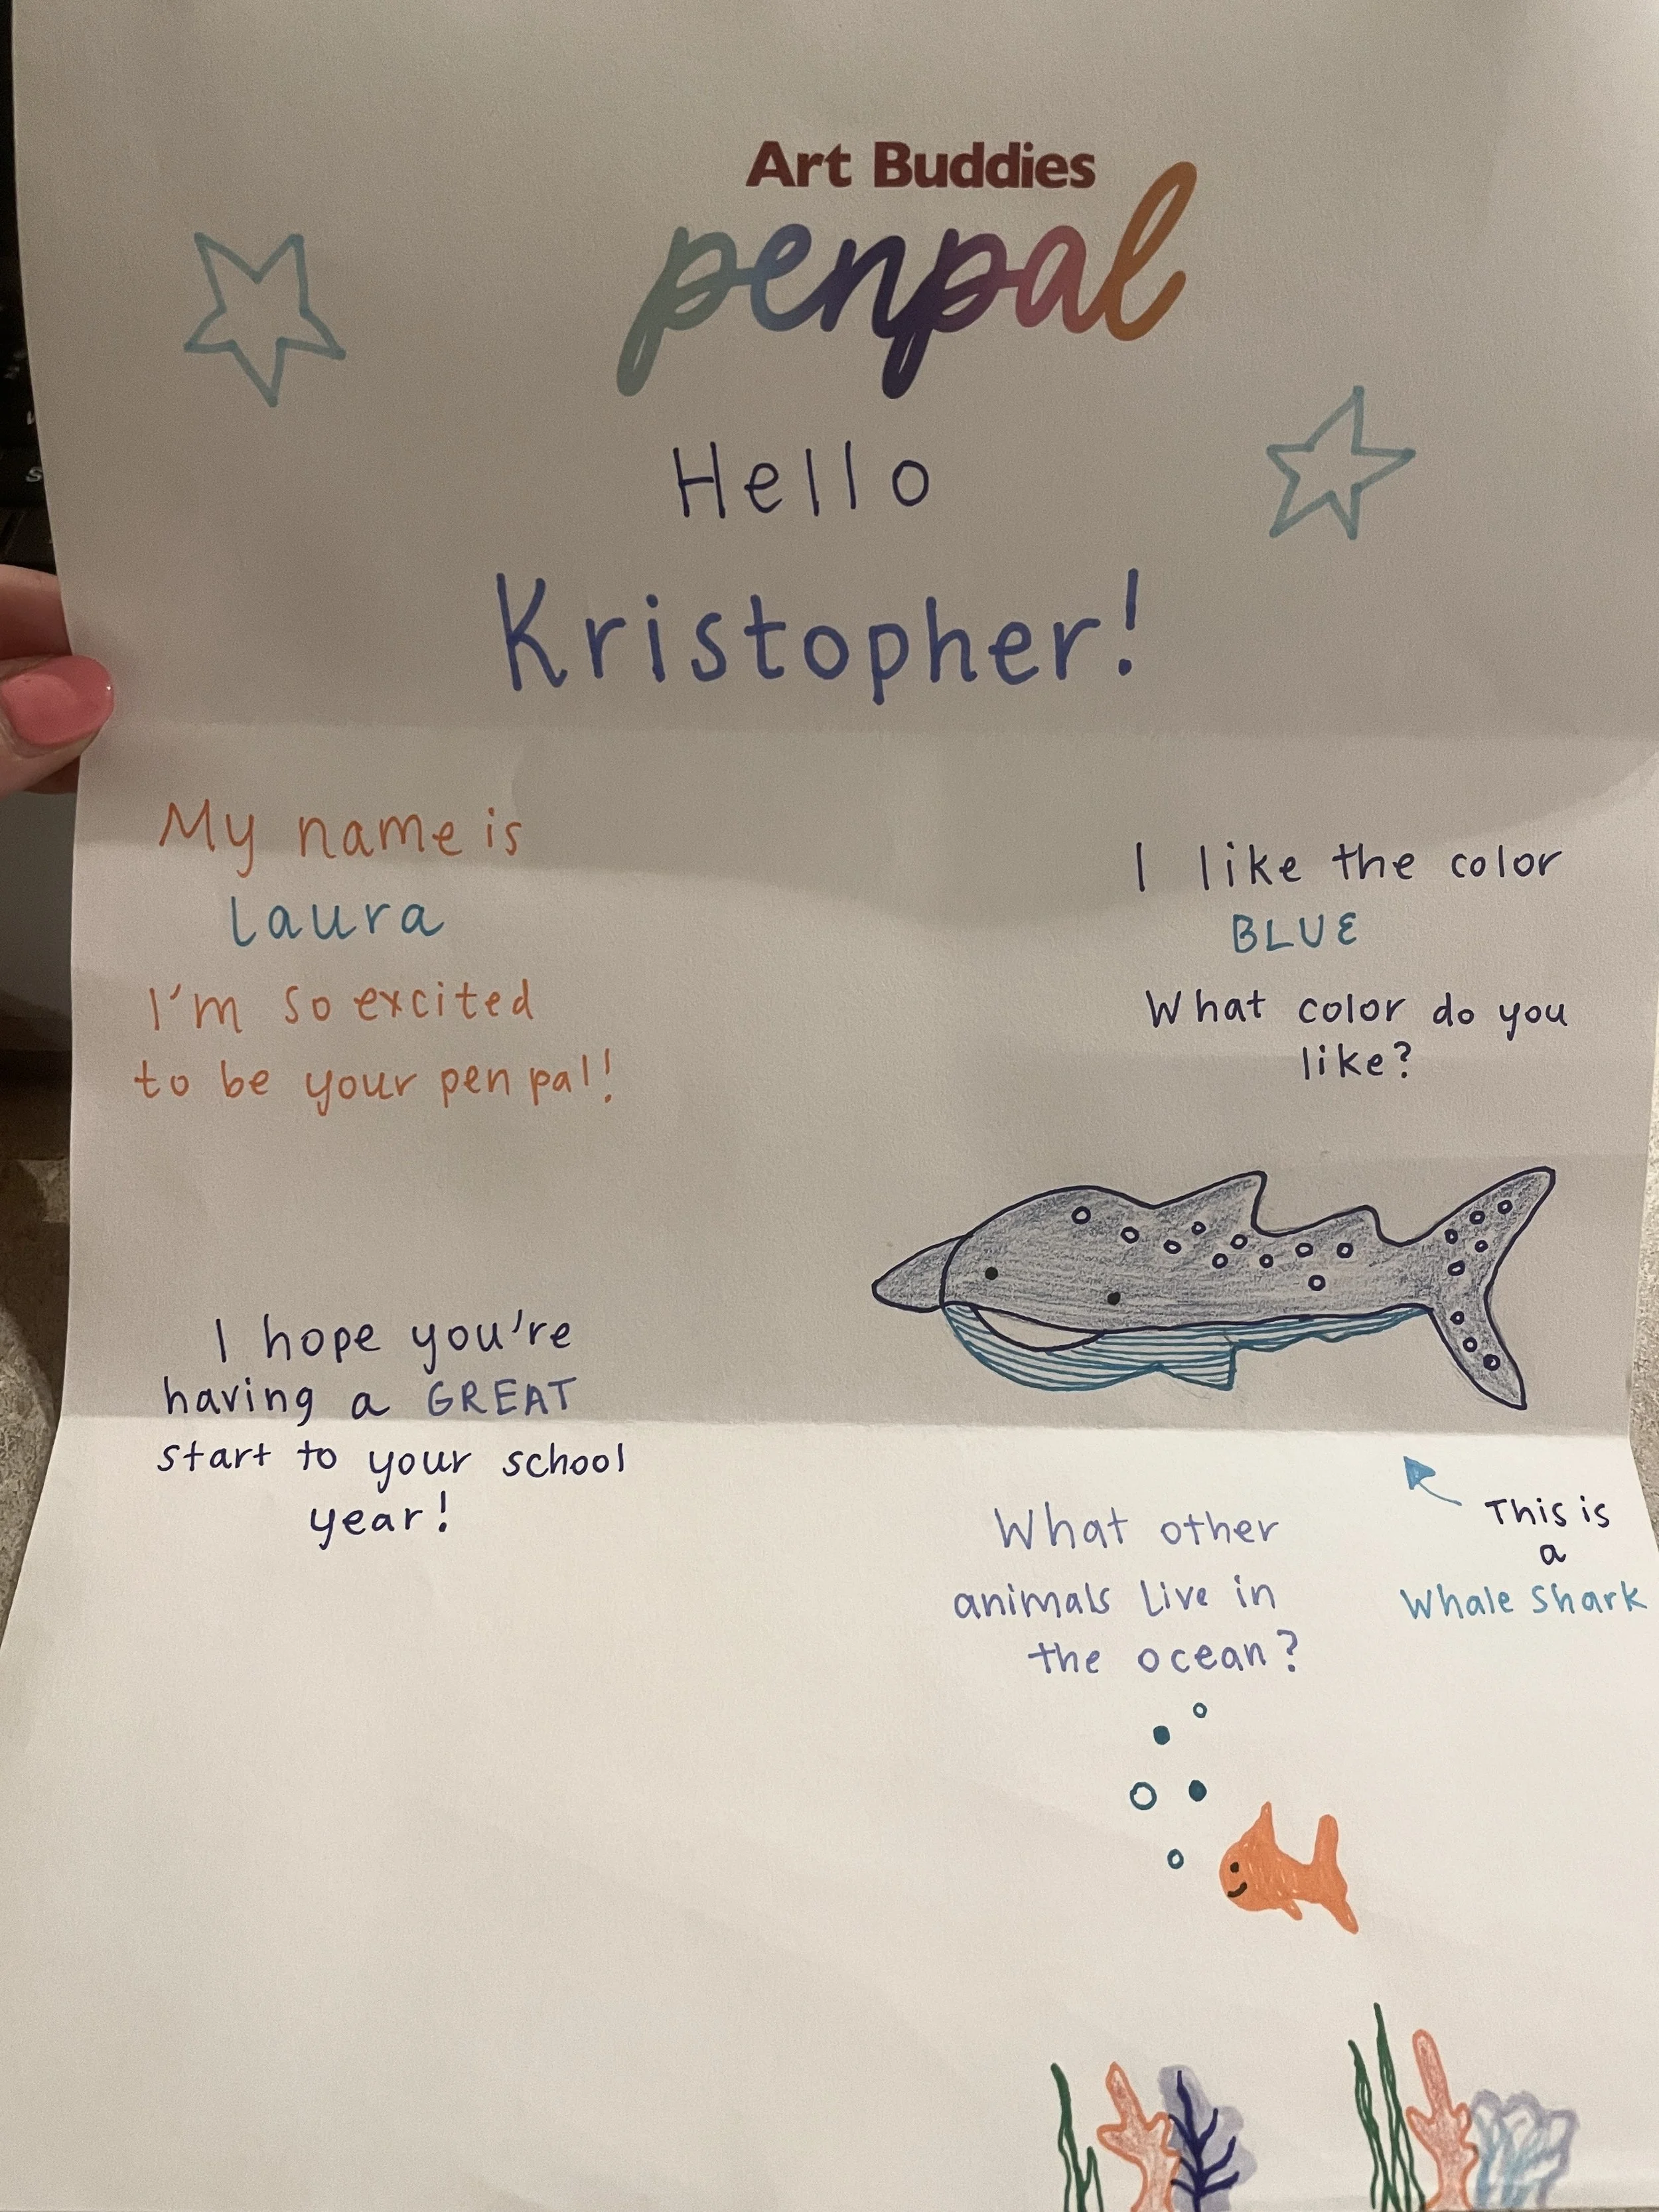 Art Buddies
penpal
Hello
Kristopher!
My name is
Laura
I'm so excited
to be your pen pal!
I like the color
BLUE
What color do you
like?
I hope you're
having a GREAT
start to your school
year!
This is
a
Whale Shark
What other
animals live in
the ocean?